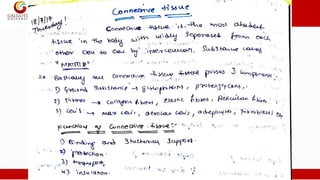 GALLERIS
18/7/17
Thursday!
Connective tissue
Connective tissue is the most abundant
tissue in the body with widly seperated from each
other cell to cell by intercellular substance called
"MATRIX"
Basically all connective tissue posses 3 components
1) Ground substance → glycoproteins, proteoglycans.
2) Fibres → collagen fibres, elastic fibres, Reticular fibres
3) Cells → mast cells, adipocytes, fibroblasts etc
Function of Connective tissue:-
1) Binding and structural support.
2) protection.
3) transport
4) insulation.